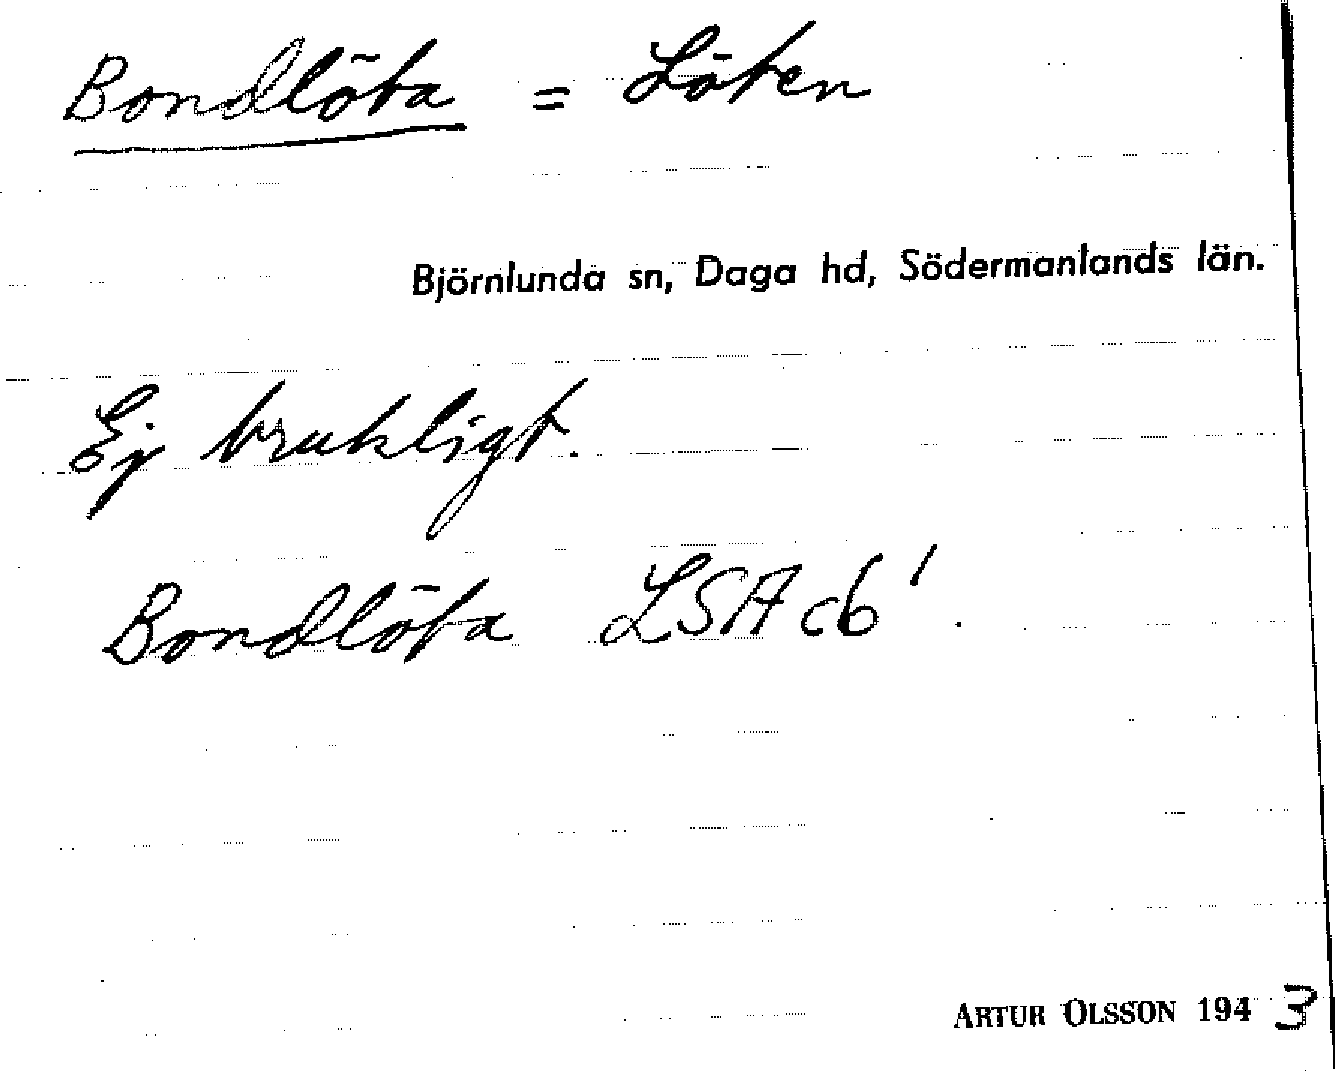 Bondlöta = Löten
Björnlunda sn, Daga hd, Södermanlands län.
Ej brukligt.
Bondlöta LSA c6'.
ARTUR OLSSON 1943